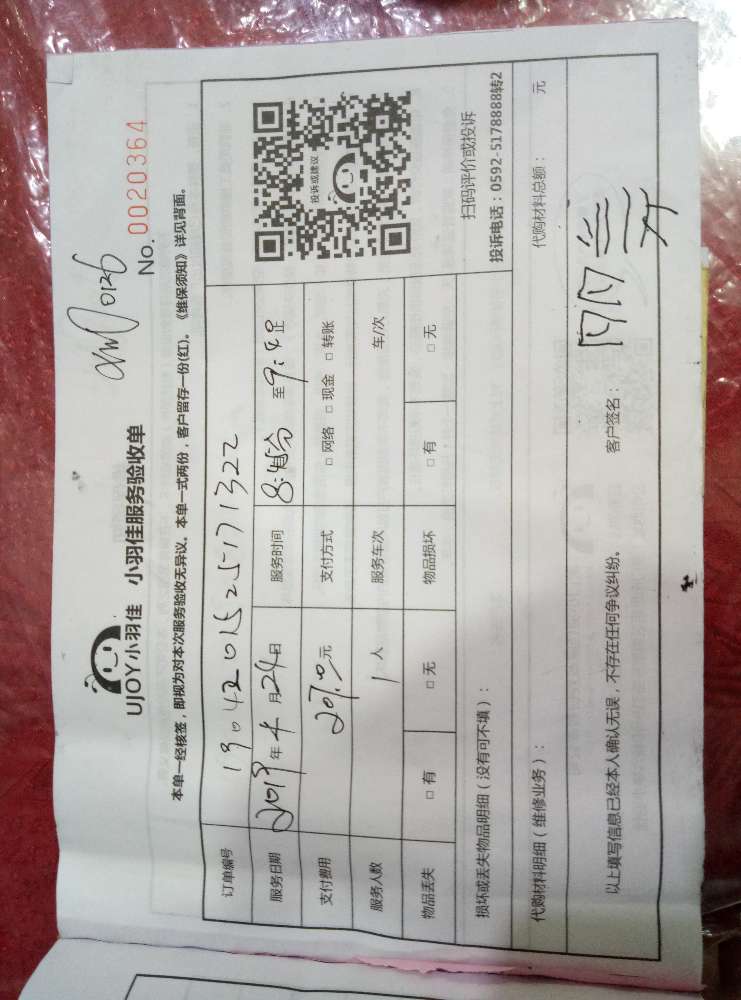 UJOY小羽佳 小羽佳服务验收单
0126
No. 0020364
本单一经核签，即视为对本次服务验收无异议。本单一式两份，客户留存一份(红)。《维保须知》详见背面。
订单编号 1904201525171322
服务日期 2019年4月24日 服务时间 8:45分 至 9:40止
支付费用 207.0元 支付方式 □网络 □现金 □转账
服务人数 1人 服务车次 车/次
物品丢失 □有 □无 物品损坏 □有 □无
投诉或建议
扫码评价或投诉
投诉电话：0592-5178888转2
损坏或丢失物品明细（没有可不填）：
代购材料明细（维修业务）： 代购材料总额： 元
以上填写信息已经本人确认无误，不存在任何争议纠纷。 客户签名：